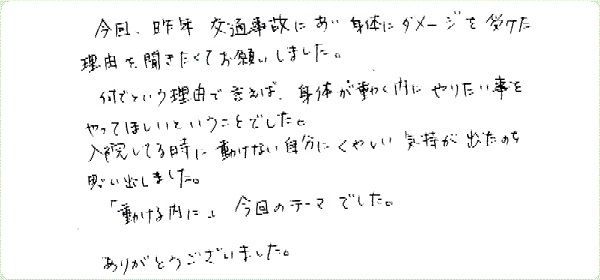 今回、昨年 交通事故にあい身体にダメージを受けた
理由を聞きたくてお願いしました。
何でという理由で言えば、身体が動く内にやりたい事を
やってほしいということでした。
入院してる時に動けない自分にくやしい気持が出たのを
思い出しました。
「動ける内に」今回のテーマでした。
ありがとうございました。